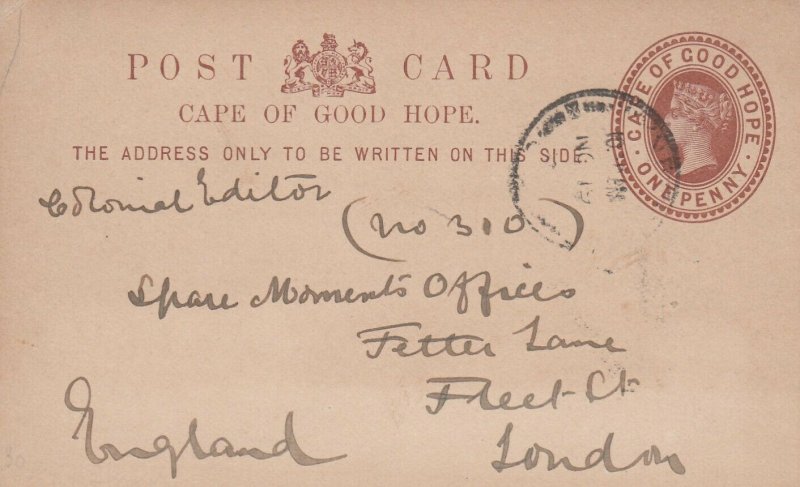 POST CARD
CAPE OF GOOD HOPE.
THE ADDRESS ONLY TO BE WRITTEN ON THIS SIDE
CAPE OF GOOD HOPE
ONE PENNY
Colonial Editor
(No 310)
Spare Moments Offices
Fetter Lane
Fleet St
London
England
30